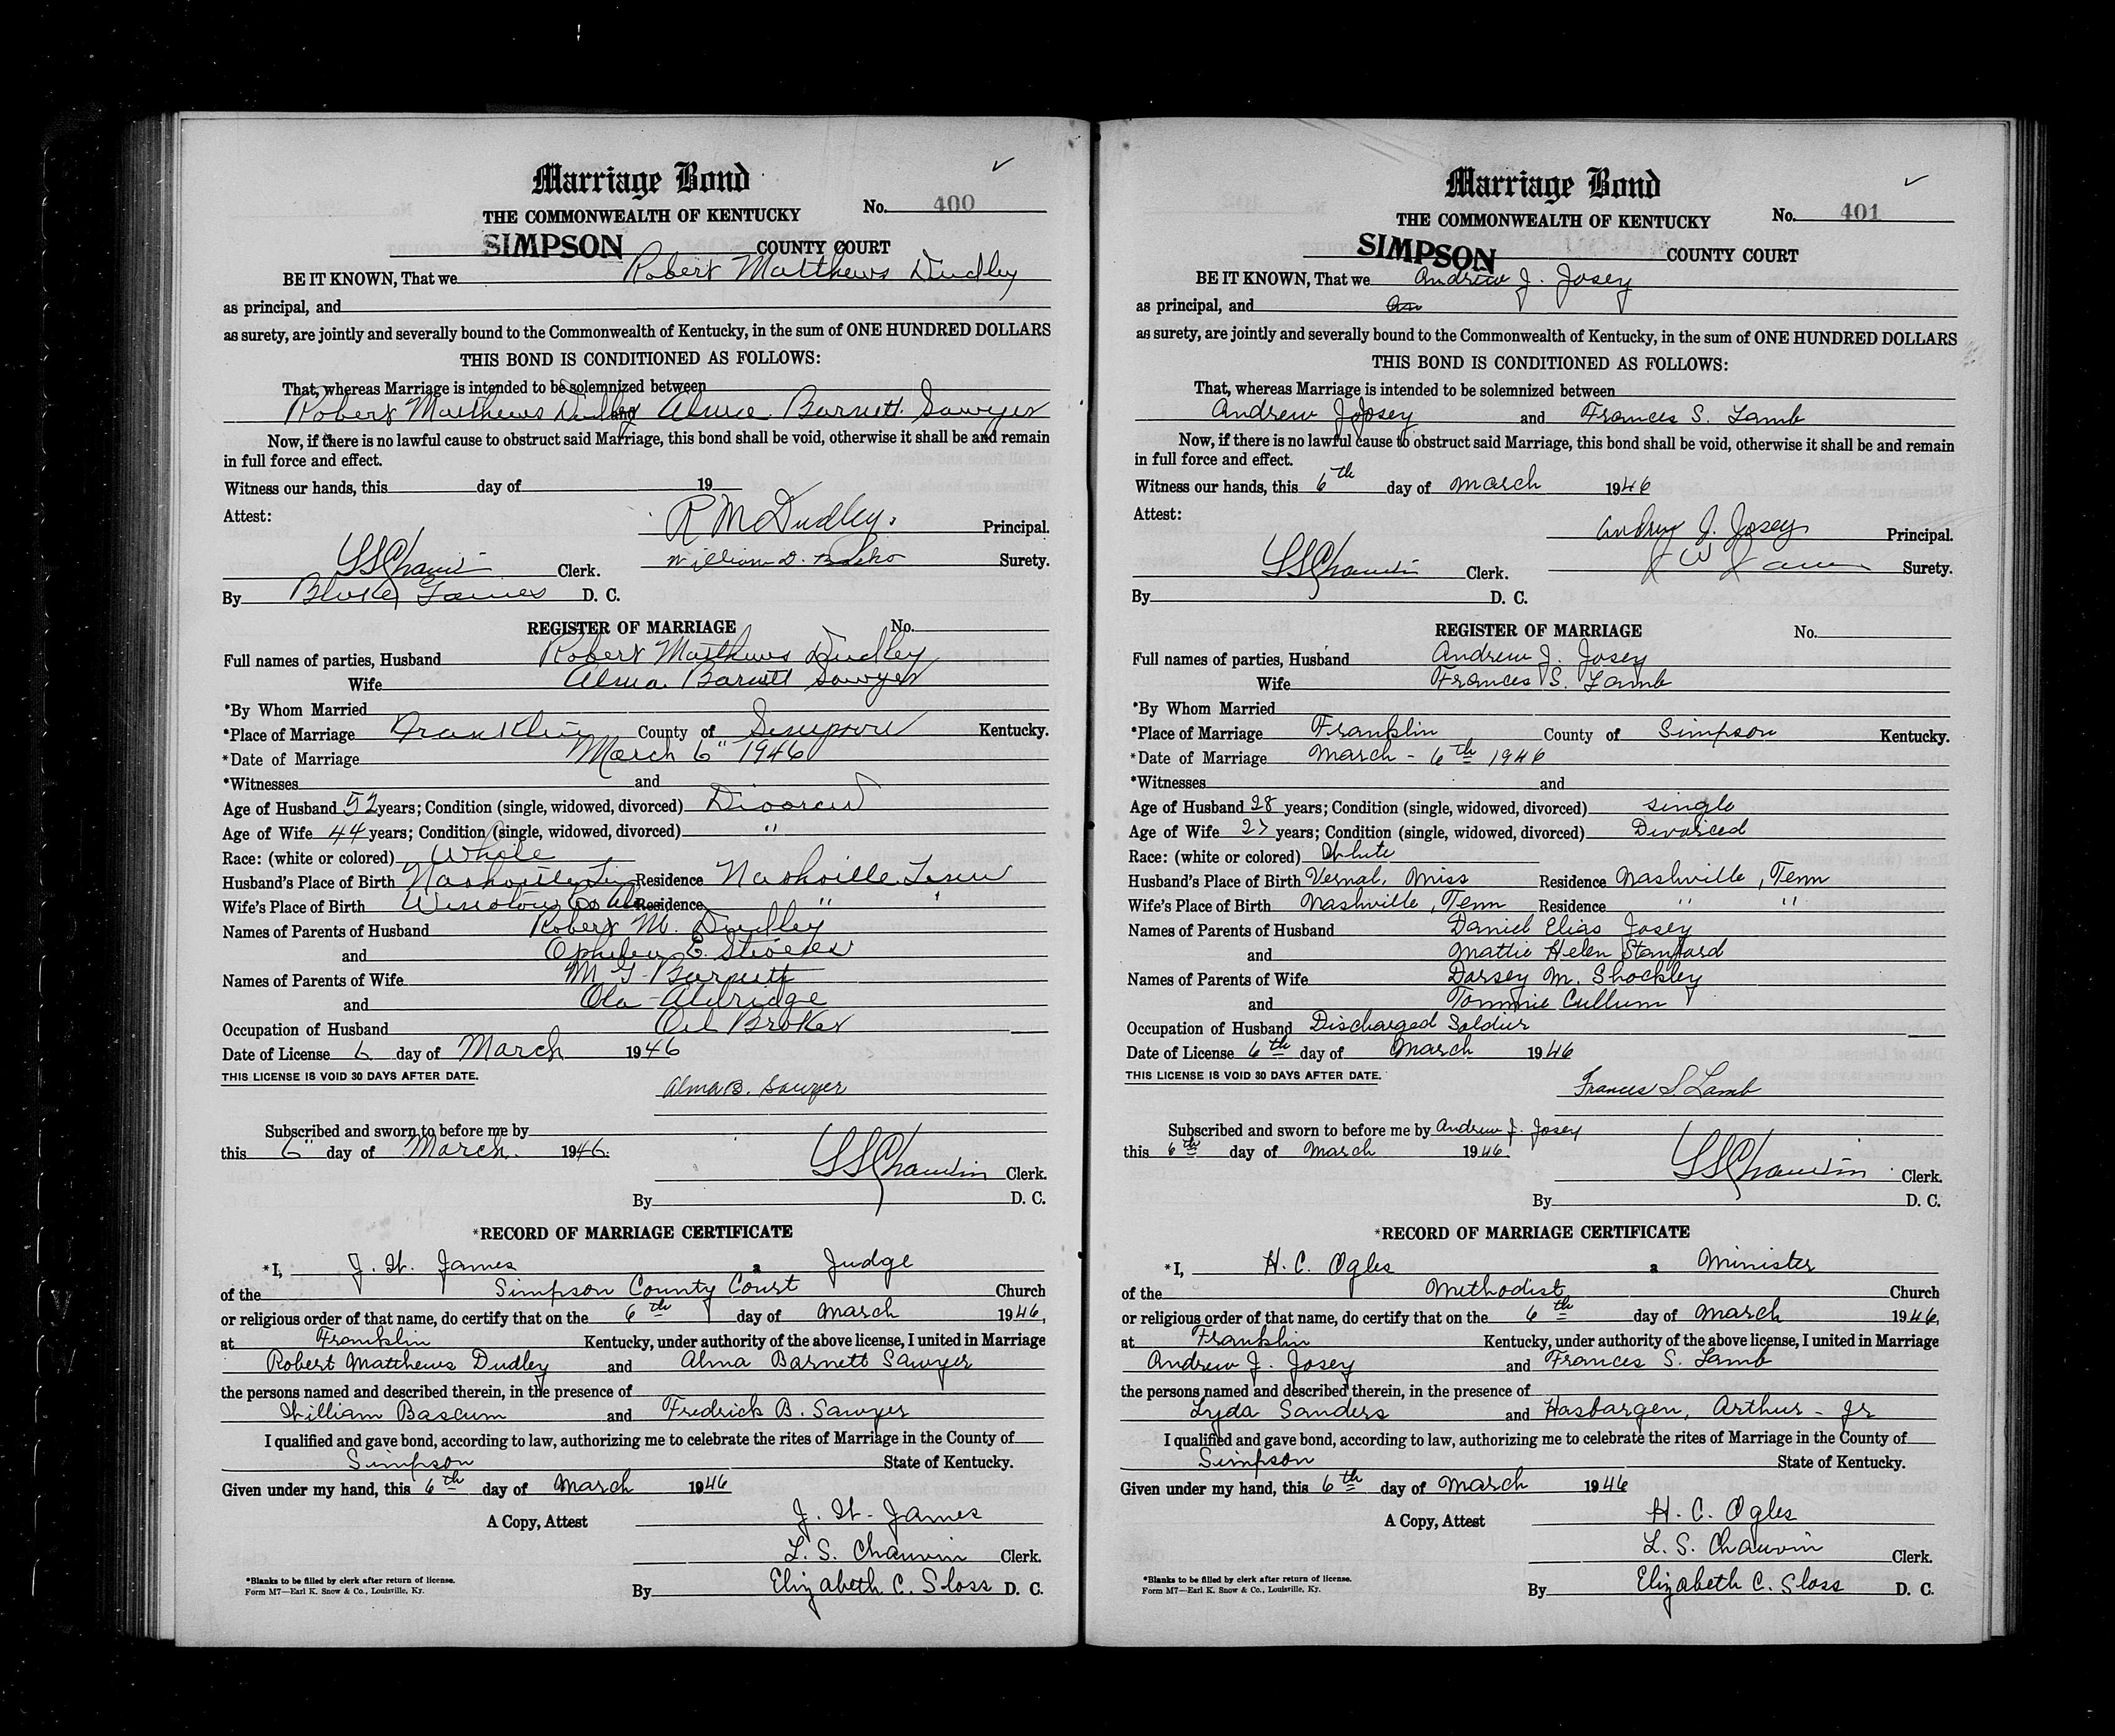 Marriage Bond
THE COMMONWEALTH OF KENTUCKY No. 400
SIMPSON COUNTY COURT
BE IT KNOWN, That we Robert Matthews Dudley
as principal, and
as surety, are jointly and severally bound to the Commonwealth of Kentucky, in the sum of ONE HUNDRED DOLLARS
THIS BOND IS CONDITIONED AS FOLLOWS:
That, whereas Marriage is intended to be solemnized between
Robert Matthews Dudley and Alma Barnett Sawyer
Now, if there is no lawful cause to obstruct said Marriage, this bond shall be void, otherwise it shall be and remain
in full force and effect.
Witness our hands, this day of 19
Attest: R M Dudley. Principal.
L S Chauvin Clerk. William D. Surety.
By D. C.
REGISTER OF MARRIAGE No.
Full names of parties, Husband Robert Matthews Dudley
Wife Alma Barnett Sawyer
*By Whom Married
*Place of Marriage Franklin County of Simpson Kentucky.
*Date of Marriage March 6" 1946
*Witnesses and
Age of Husband 52 years; Condition (single, widowed, divorced) Divorced
Age of Wife 44 years; Condition (single, widowed, divorced) "
Race: (white or colored) White
Husband's Place of Birth Nashville Residence Nashville Tenn
Wife's Place of Birth Winston Co Ala Residence " "
Names of Parents of Husband Robert M. Dudley
and E.
Names of Parents of Wife M Barnett
and Ola Aldridge
Occupation of Husband Oil Broker
Date of License 6 day of March 1946
THIS LICENSE IS VOID 30 DAYS AFTER DATE.
Alma B. Sawyer
Subscribed and sworn to before me by
this 6" day of March. 1946.
L S Chauvin Clerk.
By D. C.
*RECORD OF MARRIAGE CERTIFICATE
*I, J. W. James a Judge
of the Simpson County Court Church
or religious order of that name, do certify that on the 6th day of March 1946,
at Franklin Kentucky, under authority of the above license, I united in Marriage
Robert Matthews Dudley and Alma Barnett Sawyer
the persons named and described therein, in the presence of
William Bascum and Fredrick B. Sawyer
I qualified and gave bond, according to law, authorizing me to celebrate the rites of Marriage in the County of
Simpson State of Kentucky.
Given under my hand, this 6th day of March 1946
A Copy, Attest J. W. James
L. S. Chauvin Clerk.
By Elizabeth C. Sloss D. C.
*Blanks to be filled by clerk after return of license.
Form M7—Earl K. Snow & Co., Louisville, Ky.
Marriage Bond
THE COMMONWEALTH OF KENTUCKY No. 401
SIMPSON COUNTY COURT
BE IT KNOWN, That we Andrew J. Josey
as principal, and
as surety, are jointly and severally bound to the Commonwealth of Kentucky, in the sum of ONE HUNDRED DOLLARS
THIS BOND IS CONDITIONED AS FOLLOWS:
That, whereas Marriage is intended to be solemnized between
Andrew J Josey and Frances S. Lamb
Now, if there is no lawful cause to obstruct said Marriage, this bond shall be void, otherwise it shall be and remain
in full force and effect.
Witness our hands, this 6th day of March 1946
Attest: Andrew J. Josey Principal.
L S Chauvin Clerk. J W James Surety.
By D. C.
REGISTER OF MARRIAGE No.
Full names of parties, Husband Andrew J. Josey
Wife Frances S. Lamb
*By Whom Married
*Place of Marriage Franklin County of Simpson Kentucky.
*Date of Marriage March - 6th 1946
*Witnesses and
Age of Husband 28 years; Condition (single, widowed, divorced) single
Age of Wife 27 years; Condition (single, widowed, divorced) Divorced
Race: (white or colored) White
Husband's Place of Birth Vernal, Miss Residence Nashville, Tenn
Wife's Place of Birth Nashville, Tenn Residence " "
Names of Parents of Husband Daniel Elias Josey
and Mattie Helen Stanford
Names of Parents of Wife Dorsey M. Shockley
and Tommie Cullum
Occupation of Husband Discharged Soldier
Date of License 6th day of March 1946
THIS LICENSE IS VOID 30 DAYS AFTER DATE.
Frances S. Lamb
Subscribed and sworn to before me by Andrew J. Josey
this 6th day of March 1946.
L S Chauvin Clerk.
By D. C.
*RECORD OF MARRIAGE CERTIFICATE
*I, H. C. Ogles a Minister
of the Methodist Church
or religious order of that name, do certify that on the 6th day of March 1946,
at Franklin Kentucky, under authority of the above license, I united in Marriage
Andrew J. Josey and Frances S. Lamb
the persons named and described therein, in the presence of
Lyda Sanders and Hasbargen, Arthur - Jr
I qualified and gave bond, according to law, authorizing me to celebrate the rites of Marriage in the County of
Simpson State of Kentucky.
Given under my hand, this 6th day of March 1946
A Copy, Attest H. C. Ogles
L. S. Chauvin Clerk.
By Elizabeth C. Sloss D. C.
*Blanks to be filled by clerk after return of license.
Form M7—Earl K. Snow & Co., Louisville, Ky.